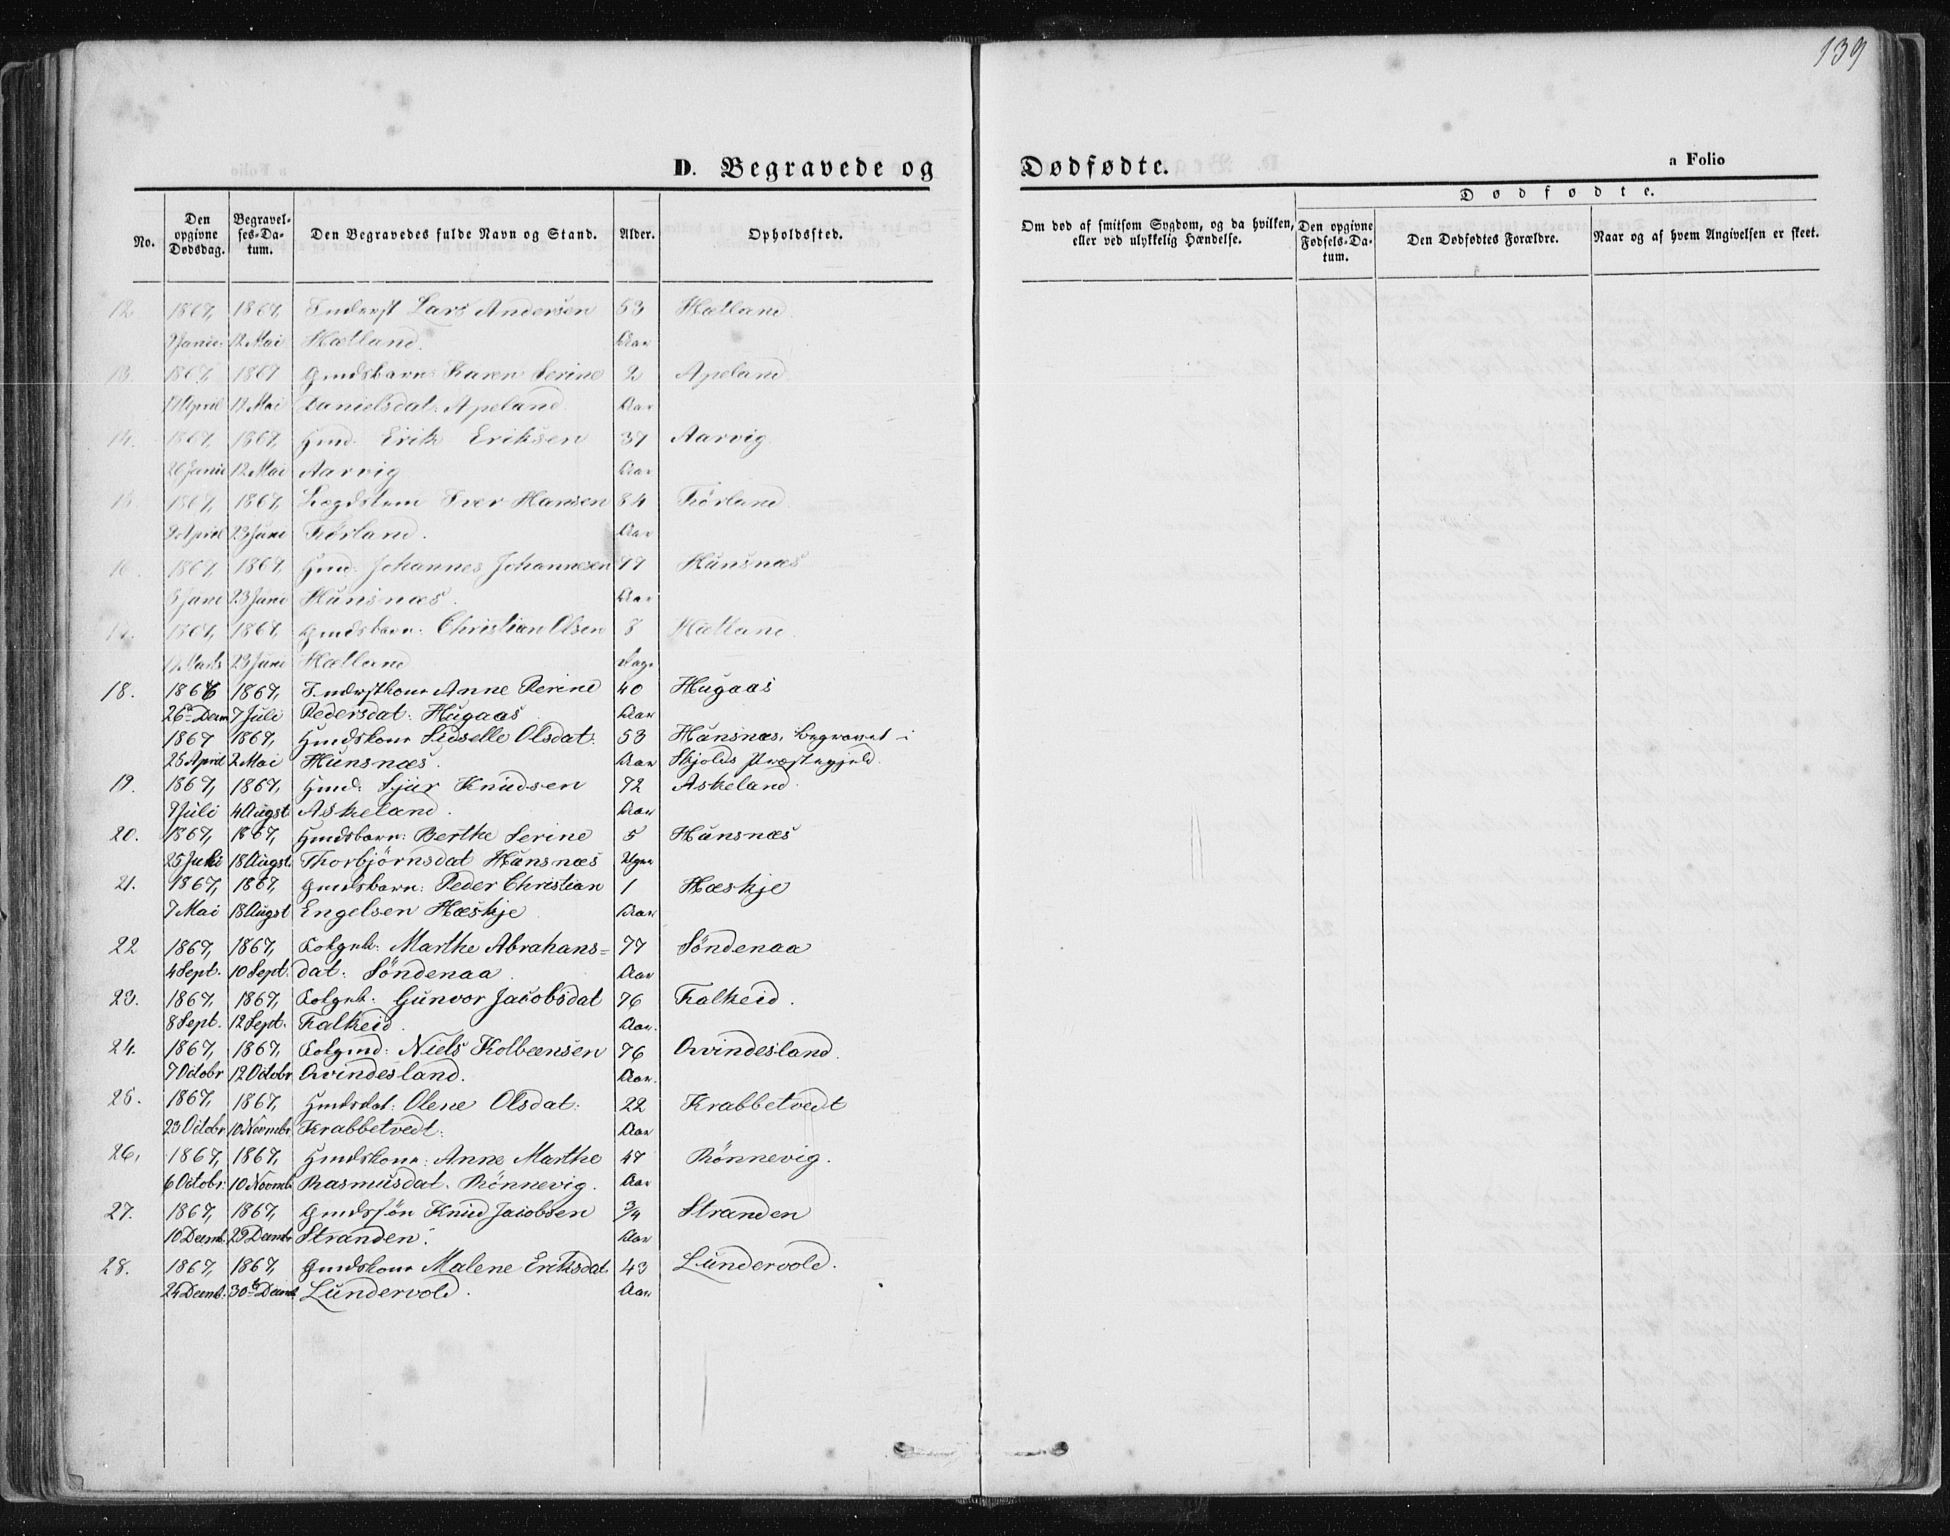 139
D. Begravede og Dødfødte.
a Folio
Dødfødte.
No.
Den opgivne Dødsdag.
Begravelses-Datum.
Den Begravedes fulde Navn og Stand.
Alder.
Opholdssted.
Om død af smitsom Sygdom, og da hvilken, eller ved ulykkelig Hændelse.
Den opgivne Fødsels-Datum.
Den Dødfødtes Forældre.
Naar og af hvem Angivelsen er skeet.
12 1867, 1867, Inderst Lars Andersen 53 Hætland
12 Mai Hætland. Aar
13. 1867, 1867 Gmdsbarn: Karen Serine 2 Apeland
April 12 Mai Danielsdat: Apeland. Aar
14. 1867, 1867, Gmd. Erik Eriksen 37 Aarvig
12 Mai Aarvig Aar
15 1867, 1867, Iver Hansen 84 Førland
April 23 Juni Førland. Aar
16 1867, 1867, Gmd: Johannes Johannesen 77 Hunsnæs
23 Juni Hunsnæs. Aar
17. 1867, 1867, Gmdsbarn: Christian Olsen 8 Hætland.
Marts 23 Juni Hætland Dage
18. 1866 1867, Inderstkone Anne Perine 40 Hugaas
26 Decm 7 Juli Pedersdat: Hugaas Aar
1867 1867, Gmdskone Sidselle Olsdat: 53 Hunsnæs, begravet i
25 April 2 Mai Hunsnæs. Aar Skjolds Præstegjeld.
19. 1867, 1867, Gmd: Sjur Knudsen 72 Askeland.
Juli 4 Augst Askeland. Aar
20. 1867, 1867, Gmdsbarn: Berthe Serine 5 Hunsnæs
25 Juli 18 Augst Thorbjørnsdat Hunsnæs Uger
21. 1867, 1867, Gmdsbarn: Peder Christian 1 Hæskje
7 Mai 18 Augst Engelsen Hæskje Aar
22 1867, 1867, Marthe Abrahams= 77 Søndenaa
4 Sept. 10 Sept. dat: Søndenaa. Aar
23. 1867, 1867, Gunvor Jacobsdat 76 Falkeid.
8 Sept. 12 Sept. Falkeid. Aar.
24. 1867, 1867, Niels Kolbeensen 76 Qvindesland.
7 Octobr 12 Octobr Qvindesland. Aar.
25. 1867, 1867, Gmdsdat: Olene Olsdat: 22 Krabbetvedt
23 Octobr 10 Novmbr Krabbetvedt: Aar
26, 1867, 1867, Gmdskone: Anne Marthe 47 Rønnevig.
6 Octobr 10 Novmb Rasmusdat. Rønnevig. Aar
27. 1867, 1867, Gmdssøn Knud Jacobsen 3/4 Stranden
10 Decmb. 29 Decmbr Stranden. Aar
28. 1867, 1867, Gmdskone Malene Eriksdat 43 Lundervold.
24 Decmb. 30 Decmb Lundervold. Aar